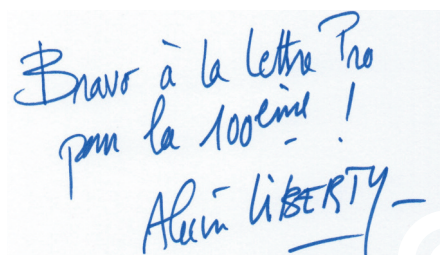 Bravo à la lettre Pro
pour la 100ème !
Alain LIBERTY